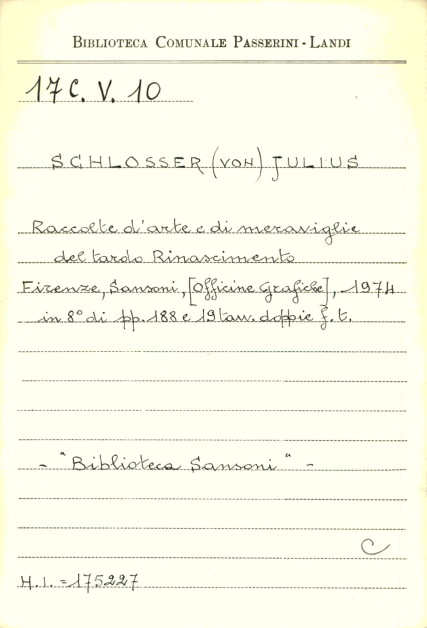 BIBLIOTECA COMUNALE PASSERINI - LANDI
17 C. V. 10
SCHLOSSER (VON) JULIUS
Raccolte d'arte e di meraviglie
del tardo Rinascimento
Firenze, Sansoni, [Officine Grafiche], 1974
in 8° di pp. 188 e 19 tav. doppie f. t.
- "Biblioteca Sansoni" -
C
H.I. = 175227